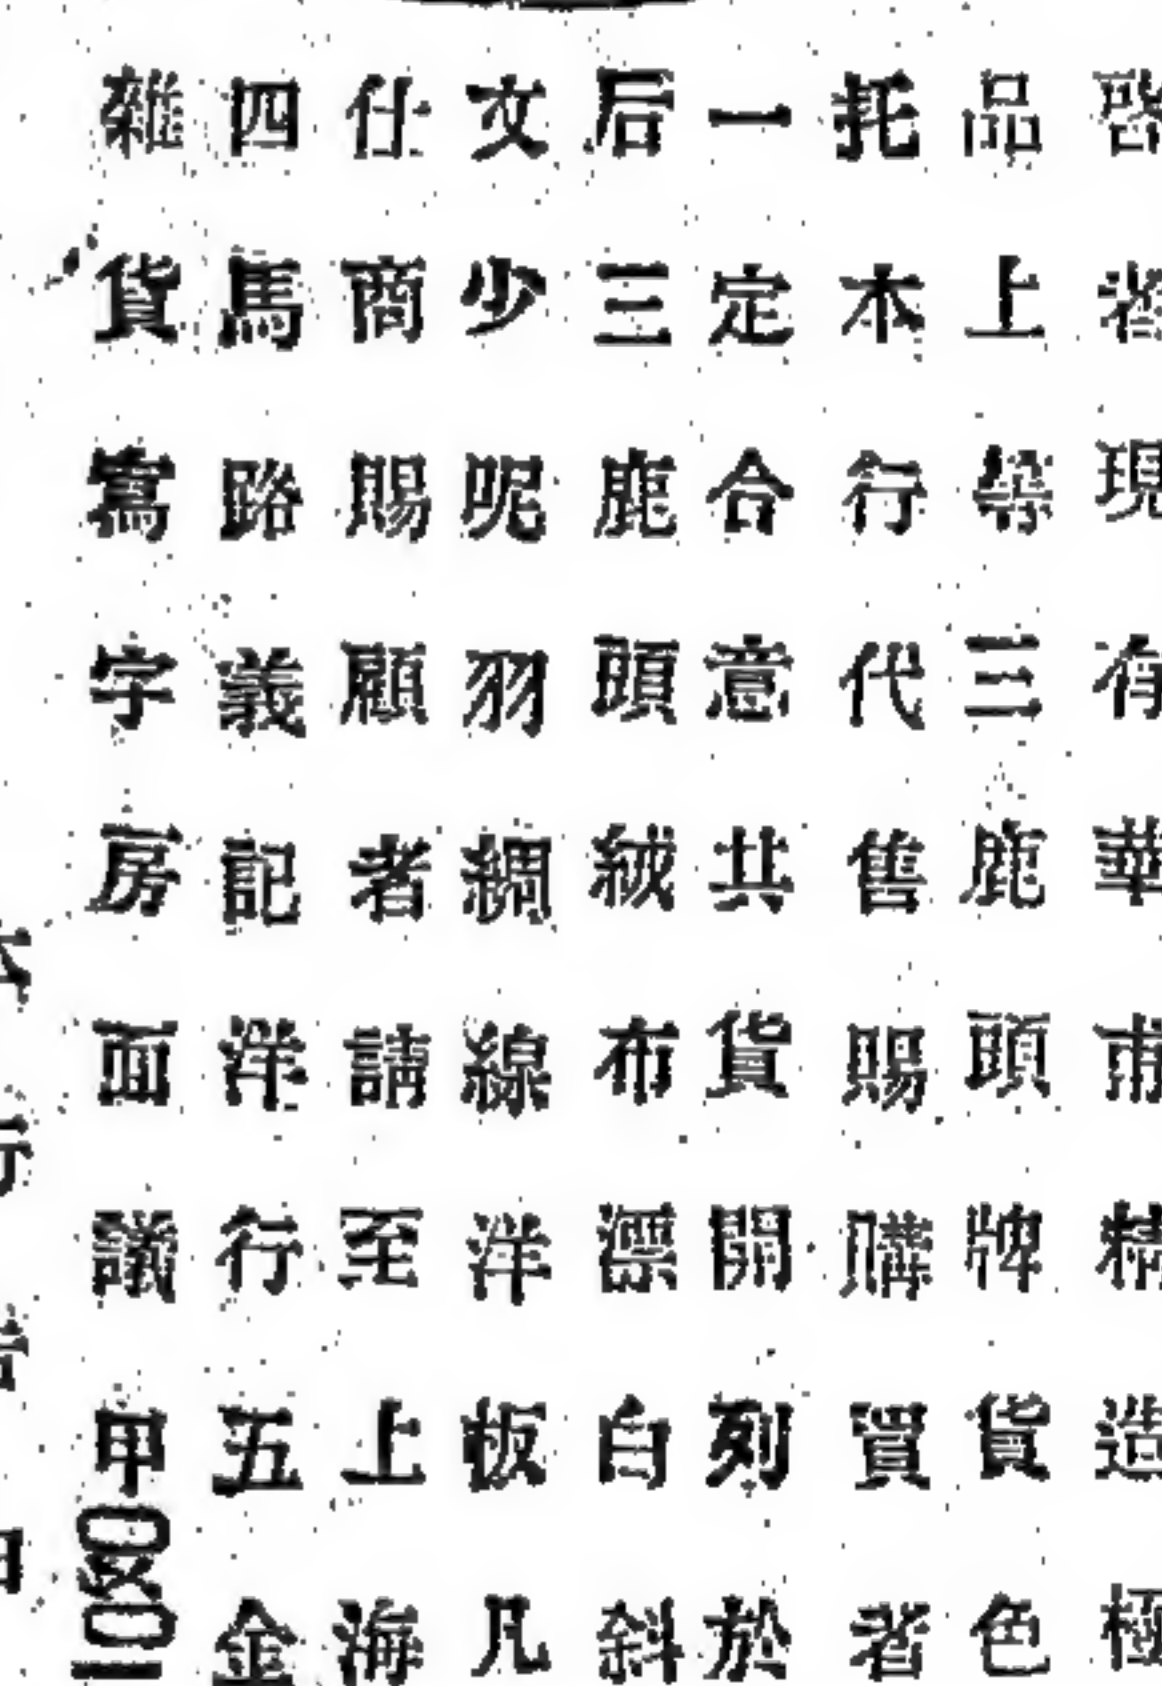 啓者現有華甫精造極
品上等三鹿頭牌貨色
托本行代售賜購買者
一定合意共貨開列於
后三鹿頭絨布漂白斜
文少呢羽綢線洋板凡
仕商賜顧者請至上海
四馬路義記洋行五金
雜貨寫字房面議甲